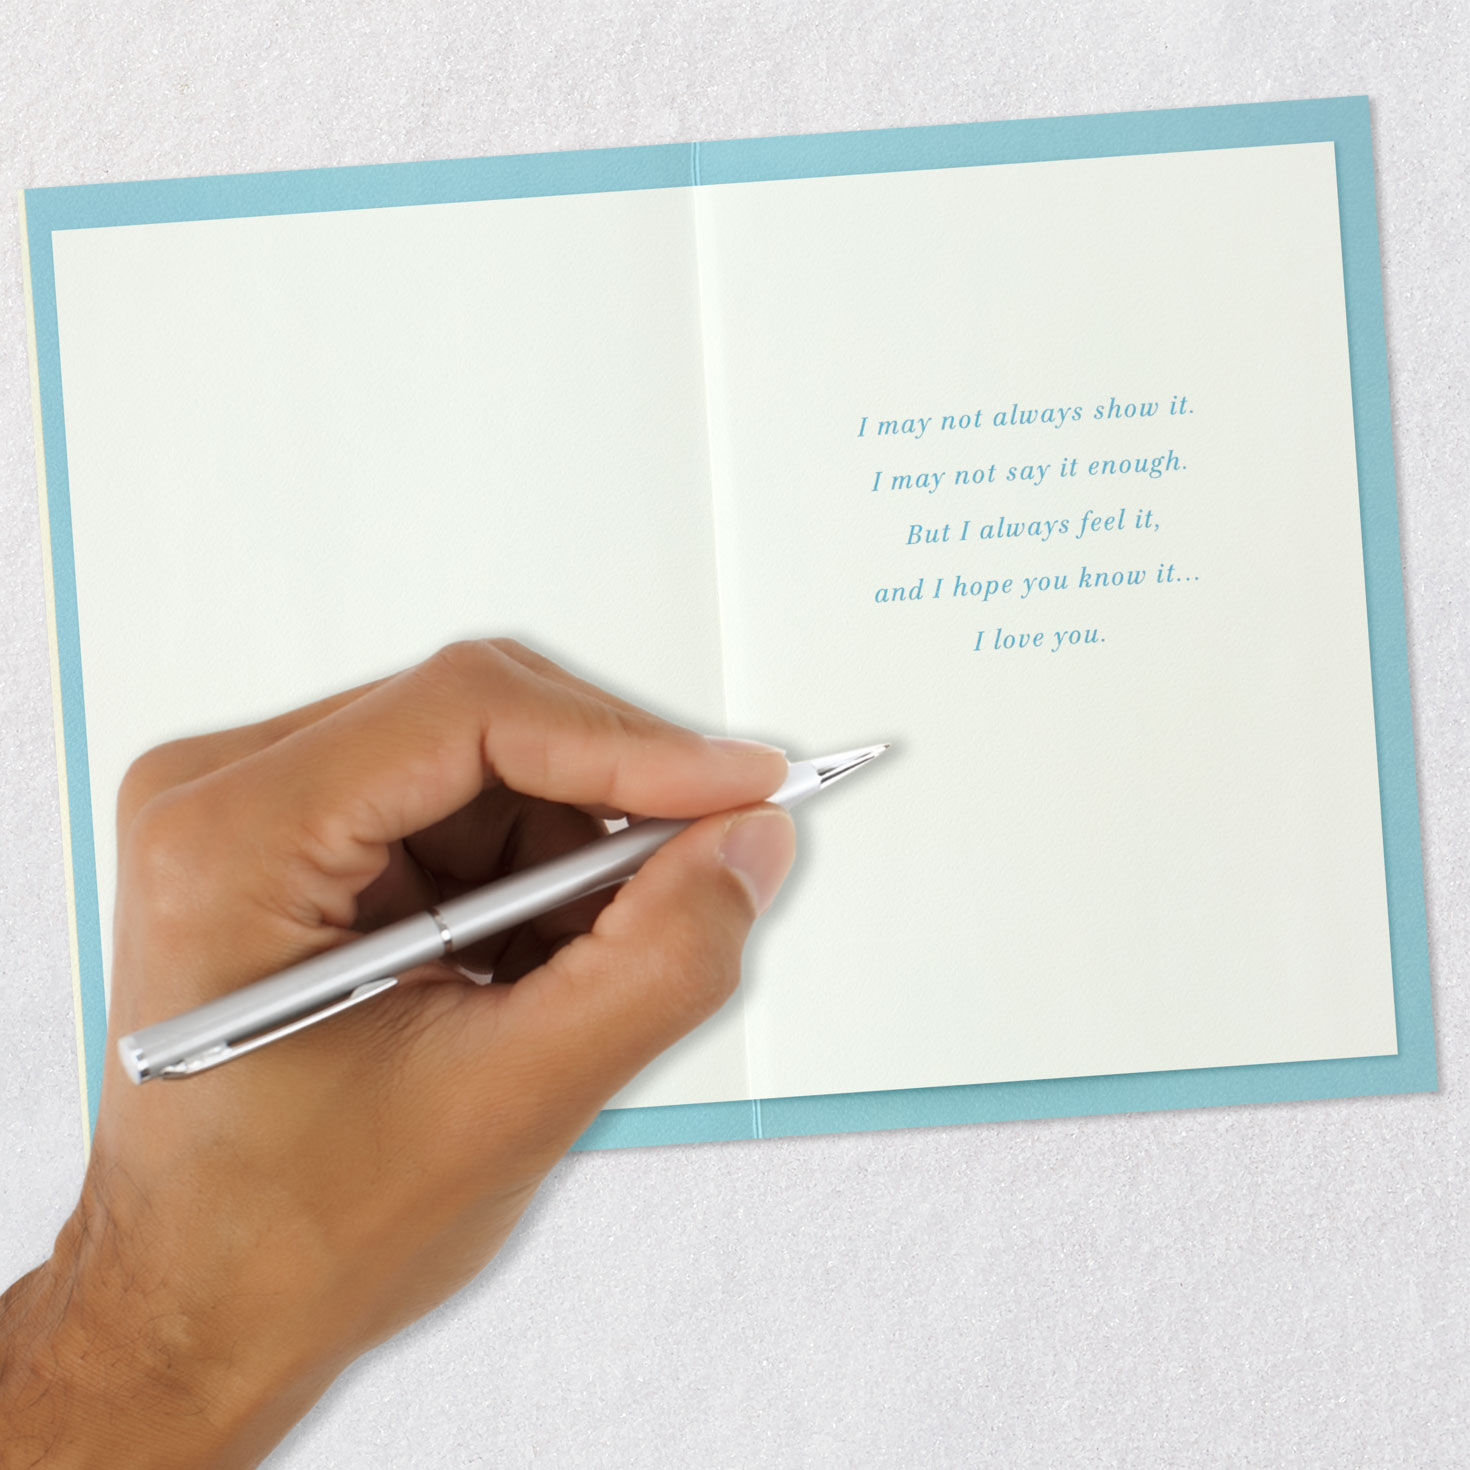 I may not always show it.
I may not say it enough.
But I always feel it,
and I hope you know it...
I love you.